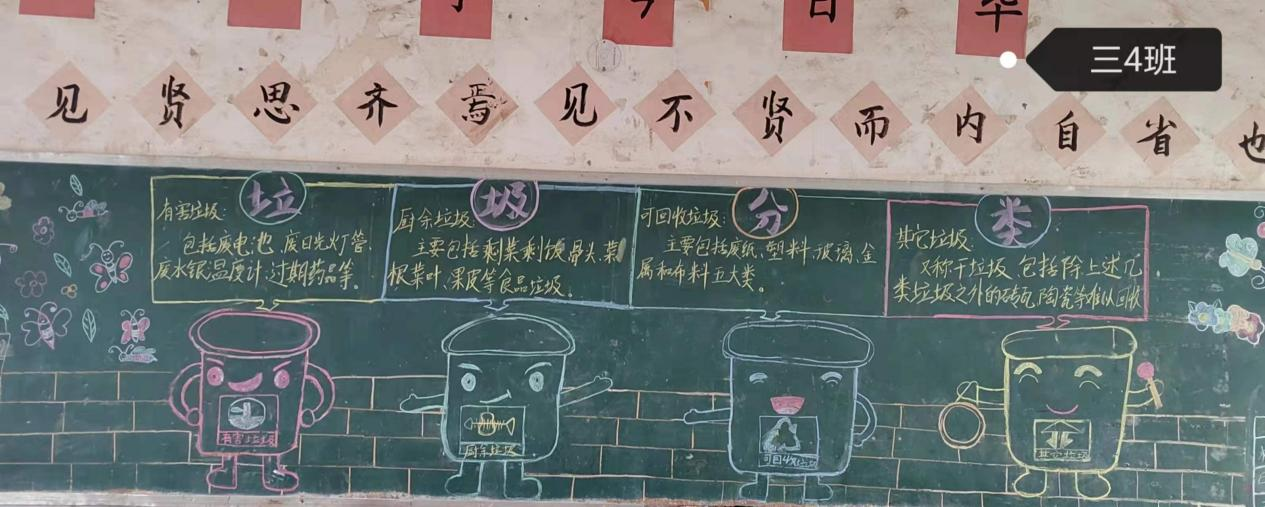 三4班
今 日 华
见贤思齐焉见不贤而内自省也
垃圾分类
有害垃圾:
包括废电池、废日光灯管、
废水银温度计、过期药品等。
厨余垃圾:
主要包括剩菜剩饭、骨头、菜
根菜叶、果皮等食品垃圾。
可回收垃圾:
主要包括废纸、塑料、玻璃、金
属和布料五大类。
其它垃圾:
又称干垃圾,包括除上述几
类垃圾之外的砖瓦、陶瓷等难以回收
有害垃圾
厨余垃圾
可回收垃圾
其它垃圾